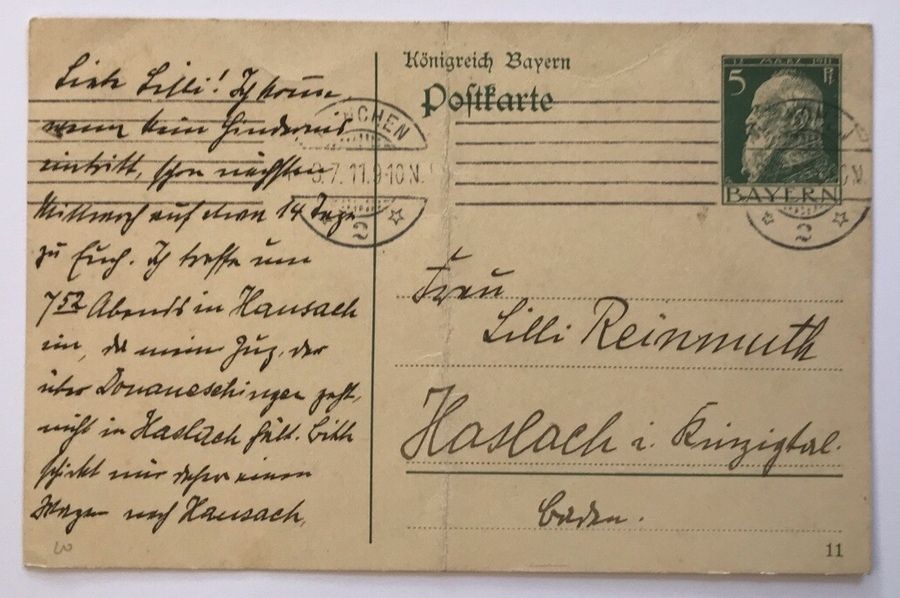 Liebe Lilli! Ich komme,
wenn kein Hindernis
eintritt, schon nächsten
Mittwoch auf etwa 14 Tage
zu Euch. Ich treffe um
7 52 Abends in Hausach
ein, da mein Zug, der
über Donaueschingen geht,
nicht in Haslach hält. Bitte
schickt mir daher einen
Wagen nach Hausach,
Königreich Bayern
Postkarte
MÜNCHEN
8.7.11.9-10 N.
2
12 MÄRZ 1911
5 Pf
BAYERN
2
Frau
Lilli Reinmuth
Haslach i. Kinzigtal.
Baden.
11